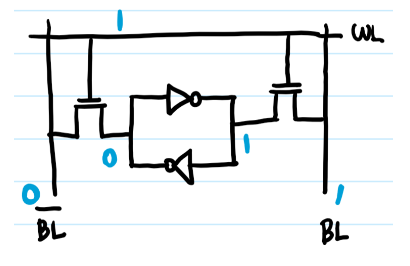 1
WL
0
1
0
1
B̅L̅
BL